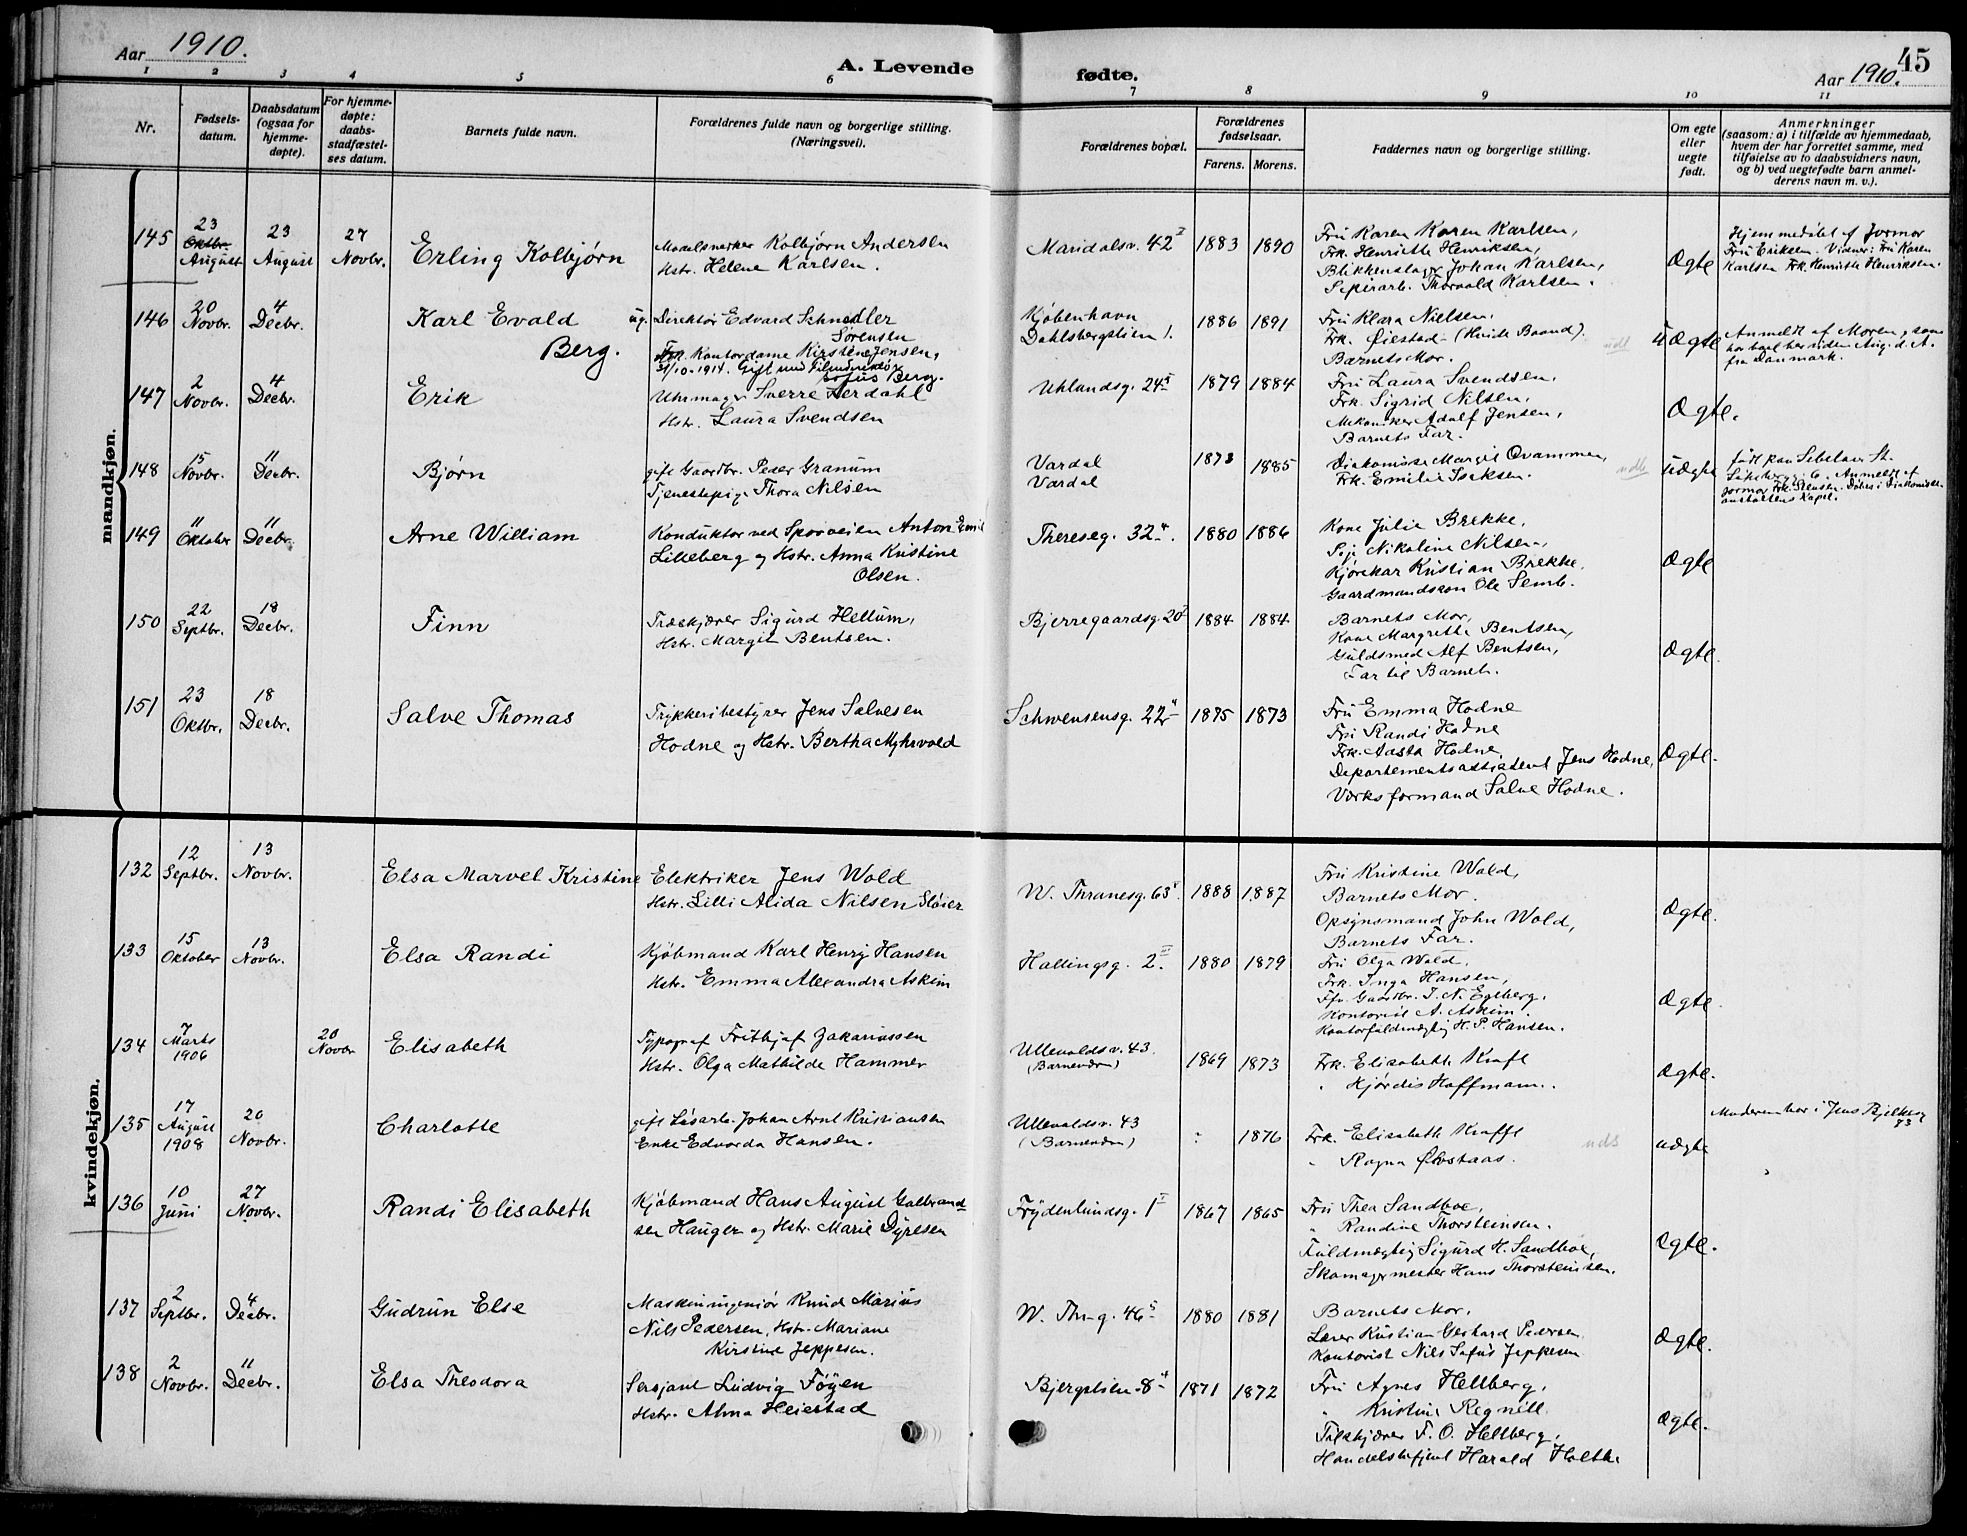 Aar 1910.
A. Levende
fødte.
Aar 1910.
45
1 2 3 4 5 6 7 8 9 10 11
Nr.
Fødsels-
datum.
Daabsdatum
(ogsaa for
hjemme-
døpte).
For hjemme-
døpte:
daabs-
stadfæstel-
ses datum.
Barnets fulde navn.
Forældrenes fulde navn og borgerlige stilling.
(Næringsvei).
Forældrenes bopæl.
Forældrenes
fødselsaar.
Farens. Morens.
Faddernes navn og borgerlige stilling.
Om egte
eller
uegte
født.
Anmerkninger
(saasom: a) i tilfælde av hjemmedaab,
hvem der har forrettet samme, med
tilføielse av to daabsvidners navn,
og b) ved uegtefødte barn anmel-
derens navn m. v.).
mandkjøn.
145
23
Oktbr.
August
23
August
27
Novbr.
Erling Kolbjørn
Modelsnekker Kolbjørn Andersen
Hstr. Helene Karlsen.
Maridalsv. 42 I
1883 1890
Fru Karen Karen Karlsen,
Frk. Henriette Henriksen,
Blikkenslager Johan Karlsen,
Thorvald Karlsen.
Ægte
Hjemmedøbt af Jormor
Fru Eriksen. Vidner: Fru Karen
Karlsen Frk. Henriette Henriksen.
146
20
Novbr.
4
Decbr.
Karl Evald
Berg.
ug. Direktør Edvard Schnedler
Sørensen
Frk. Kontordame Kirstine Jensen,
31/10-1914. Gift med
Berg.
Kjøbenhavn
Dahlsbergstien 1.
1886 1891
Fru Klara Nielsen.
Frk. Øiestad (Hvide Baand).
Barnets Mor.
udt
uÆgte
Anmeldt af Moren, som
har boet her siden Aug. d. A.
fra Danmark.
147
2
Novbr.
4
Decbr.
Erik
Uhrmager Sverre Lerdahl
Hstr. Laura Svendsen
Uhlandsg. 24 5
1879 1884
Fru Laura Svendsen,
Frk. Sigrid Nilsen,
Mekaniker Adolf Jensen,
Barnets Far.
Ægte.
148
15
Novbr.
11
Decbr.
Bjørn
gift Gaardbr. Peder Granum
Tjenestepige Thora Nilsen
Vardal
Vardal
1873 1885
Diakonisse Margit Qvammen,
Frk. Emilie Isaksen.
udt
uægte
Anmeldt af
Jormor Frk. Stensen. Døbt i Diakonisse-
anstaltens Kapel.
149
11
Oktober
11
Decbr.
Arne William
Konduktør ved Sporveien Anton Emil
Lilleberg og Hstr. Anna Kristine
Olsen.
Thereseg. 32 4.
1880 1886
Kone Julie Brekke,
Pige Nikoline Nilsen,
Kjørekar Kristian Brekke,
Gaardmandssøn Ole Semb.
Ægte
150
22
Septbr.
18
Decbr.
Finn
Træskjærer Sigurd Hellum,
Hstr. Margit Bentsen.
Bjerregaardsg. 20 I
1884 1884
Barnets Mor,
Kone Margrethe Bentsen,
Guldsmed Alf Bentsen,
Far til Barnet.
Ægte.
151
23
Oktbr.
18
Decbr.
Salve Thomas
Trykkeribestyrer Jens Salvesen
Hodne og Hstr. Bertha Myhrvold
Schwensensg. 22 4
1875 1873
Fru Emma Hodne
Fru Randi Hodne
Frk. Aasta Hodne,
Departementsassistent Jens Hodne,
Værksformand Salve Hodne.
Ægte.
kvindekjøn.
132
12
Septbr.
13
Novbr.
Elsa Marvel Kristine
Elektriker Jens Wold
Hstr. Lilli Alida Nilsen Sløier
W. Thranesg. 63
1888 1887
Fru Kristine Wold,
Barnets Mor.
Opsynsmand John Wold,
Barnets Far.
Ægte.
133
15
Oktober
13
Novbr.
Elsa Randi
Kjøbmand Karl Henry Hansen
Hstr. Emma Alexandra Askim
Hallingsg. 2 III
1880 1879
Fru Olga Wold,
Frk. Inga Hansen,
Gaardbr. I. N. Egeberg,
Kontorist A. Askim.
Kontorfuldmægtig H. P. Hansen.
Ægte.
134
7
Marts
1906
20
Novbr
Elisabeth
Typograf Frithjof Zakariassen
Hstr. Olga Mathilde Hammer
Ullevoldsv. 43.
(Barnevern)
1869 1873
Frk. Elisabeth Kraft
" Hjørdis Hoffmann.
Ægte.
135
17
August
1908
20
Novbr.
Charlotte
gift Løsarb. Johan Arnt Kristiansen
Enke Edvarda Hansen.
Ullevoldsv. 43
(Barnevern)
: 1876
Frk. Elisabeth Krafft
" Ragna Øvstaas.
uds
uægte
Moderen bor i Jens Bjelkesg
73
136
10
Juni
27
Novbr.
Randi Elisabeth
Kjøbmand Hans August Galbrand-
sen Hauger og Hstr. Marie Dyresen
Frydenlundsg. 1 I
1867 1865
Fru Thea Sandboe,
" Randine Thorsteinsen.
Fuldmægtig Sigurd H. Sandboe,
Skomagermester Hans Thorsteinsen.
Ægte.
137
2
Septbr.
4
Decbr.
Gudrun Else
Maskiningeniør Knud Marius
Nils Pedersen, Hstr. Mariane
Kirstine Jeppesen.
W. Thr.g. 46 5
1880 1881
Barnets Mor,
Lærer Kristian Gerhard Pedersen
Kontorist Nils Sofus Jeppesen
Ægte.
138
2
Novbr.
11
Decbr.
Elsa Theodora
Sersjant Ludvig Føyen
Hstr. Alma Heiestad
Bjergstien 8 4
1871 1872
Fru Agnes Hellberg,
" Kristine Regnéll.
F. O. Hellberg,
Handelsbetjent Harald Holthe
Ægte.